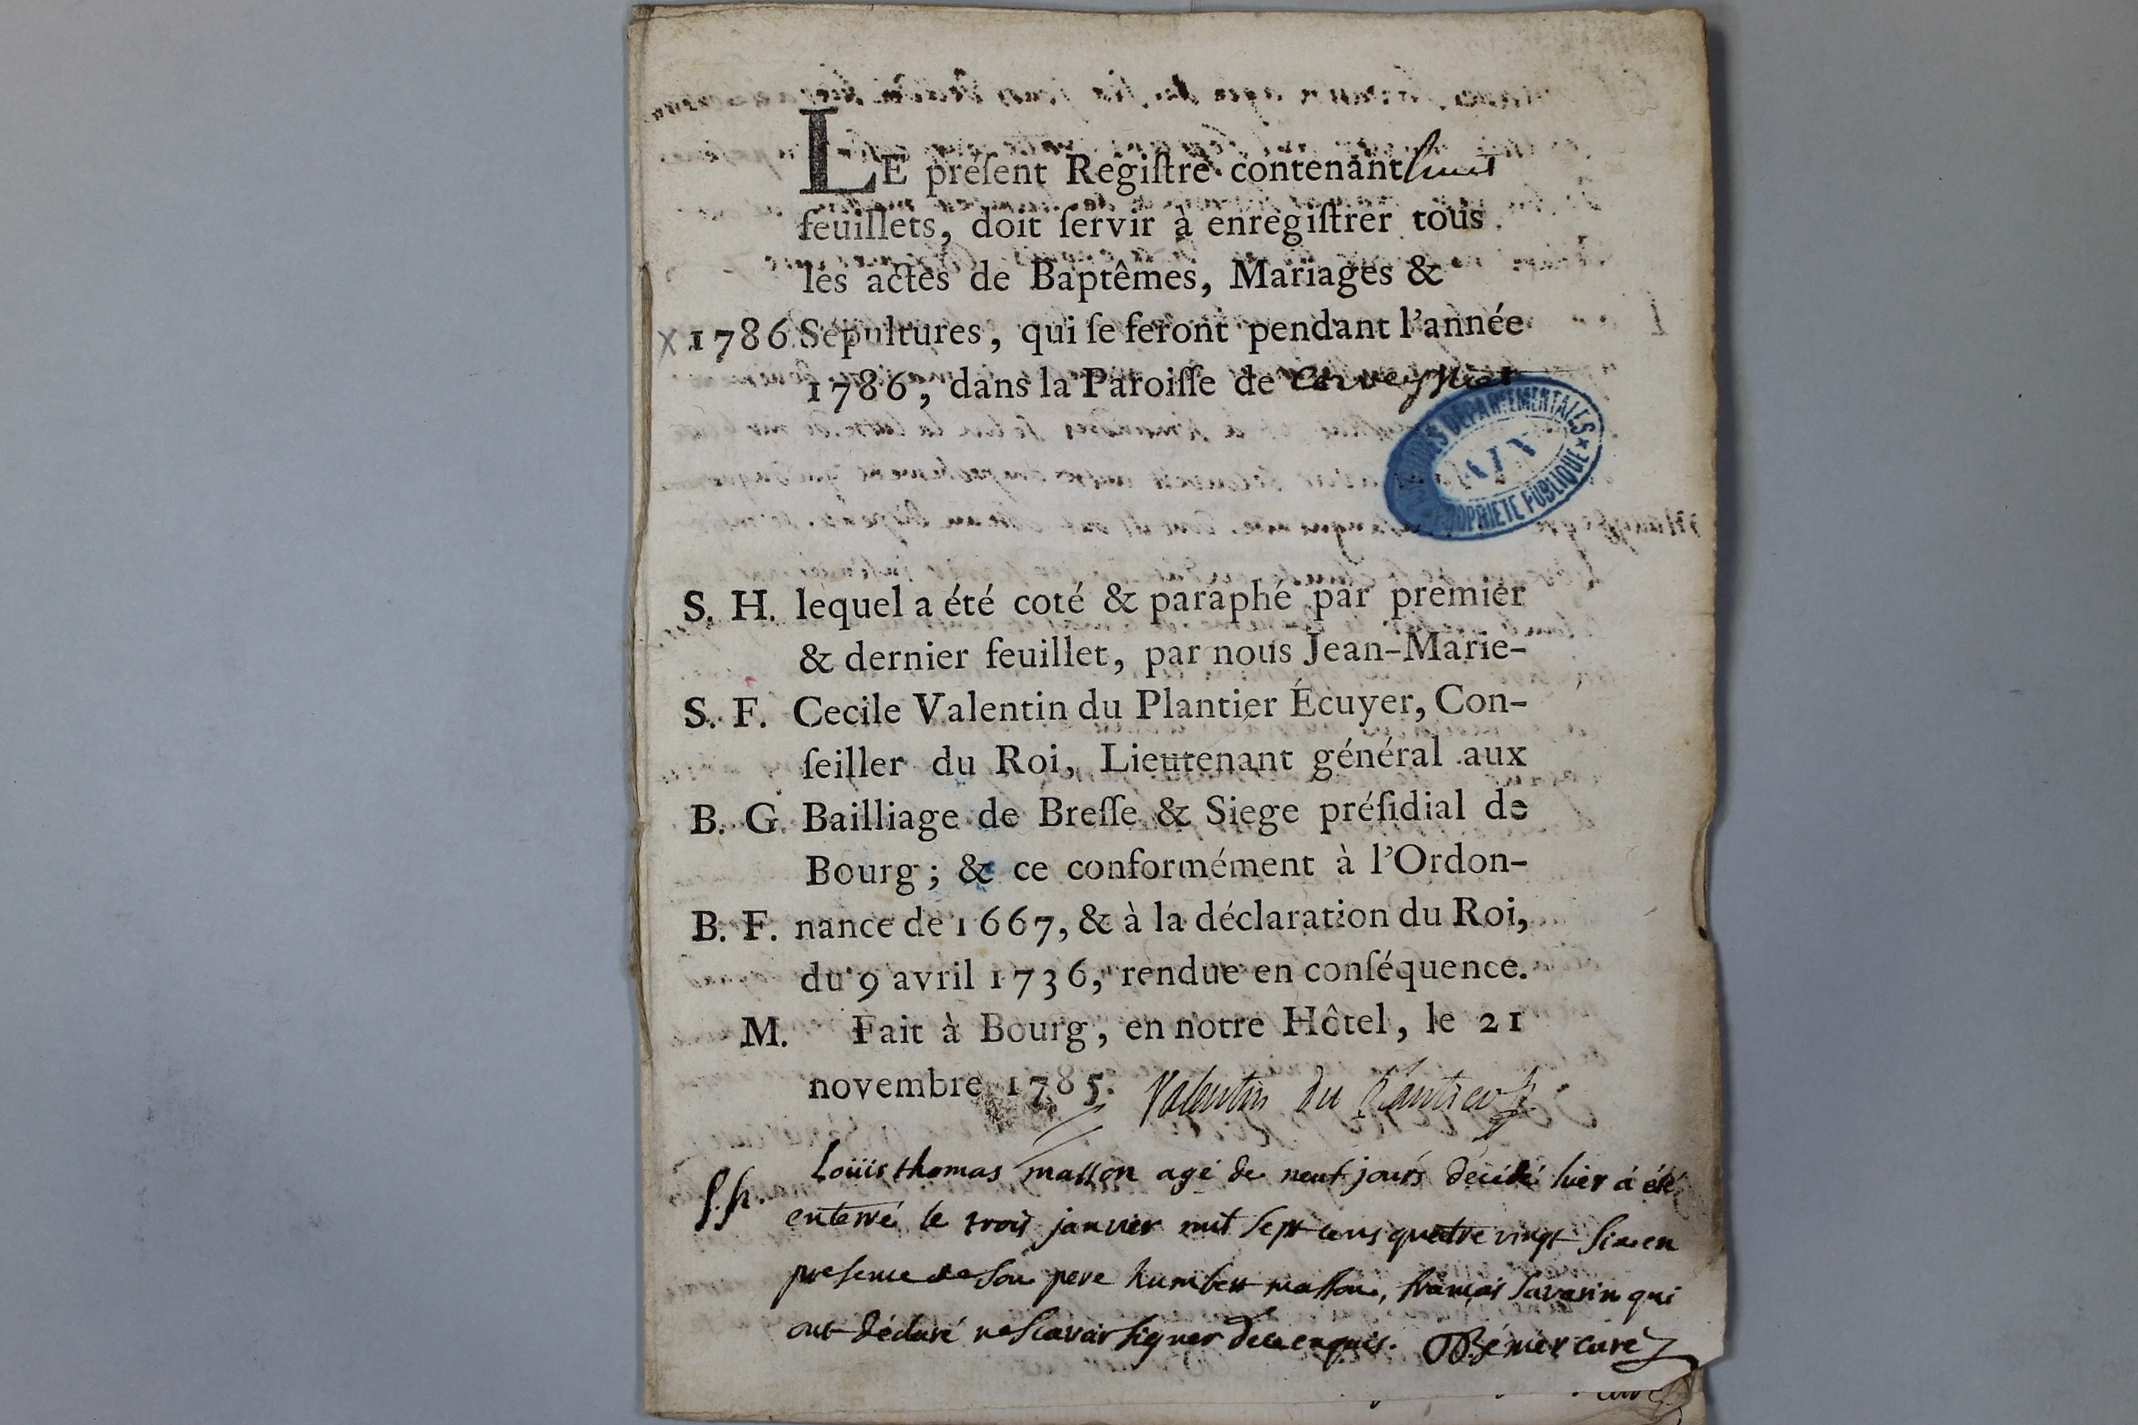 LE préſent Regiſtre contenant huit
feuillets, doit ſervir à enregiſtrer tous
les actes de Baptêmes, Mariages &
X 1786 Sépultures, qui ſe feront pendant l'année
1786, dans la Paroiſſe de
ARCHIVES DÉPARTEMENTALES
AIN
PROPRIÉTÉ PUBLIQUE
S. H. lequel a été coté & paraphé par premier
& dernier feuillet, par nous Jean-Marie-
S. F. Cecile Valentin du Plantier Écuyer, Con-
ſeiller du Roi, Lieutenant général aux
B. G. Bailliage de Breſſe & Siege préſidial de
Bourg; & ce conformément à l'Ordon-
B. F. nance de 1667, & à la déclaration du Roi,
du 9 avril 1736, rendue en conſéquence.
M. Fait à Bourg, en notre Hôtel, le 21
novembre 1785. Valentin du Plantier
Loüis thomas masson agé de neuf jours décédé hier á été
S. h. enterré le trois janvier mil sept cens quatre vingt six en
presence de son pere humbert masson, françois savarin qui
ont déclaré ne scavoir signer de ce enquis. Bénier curé